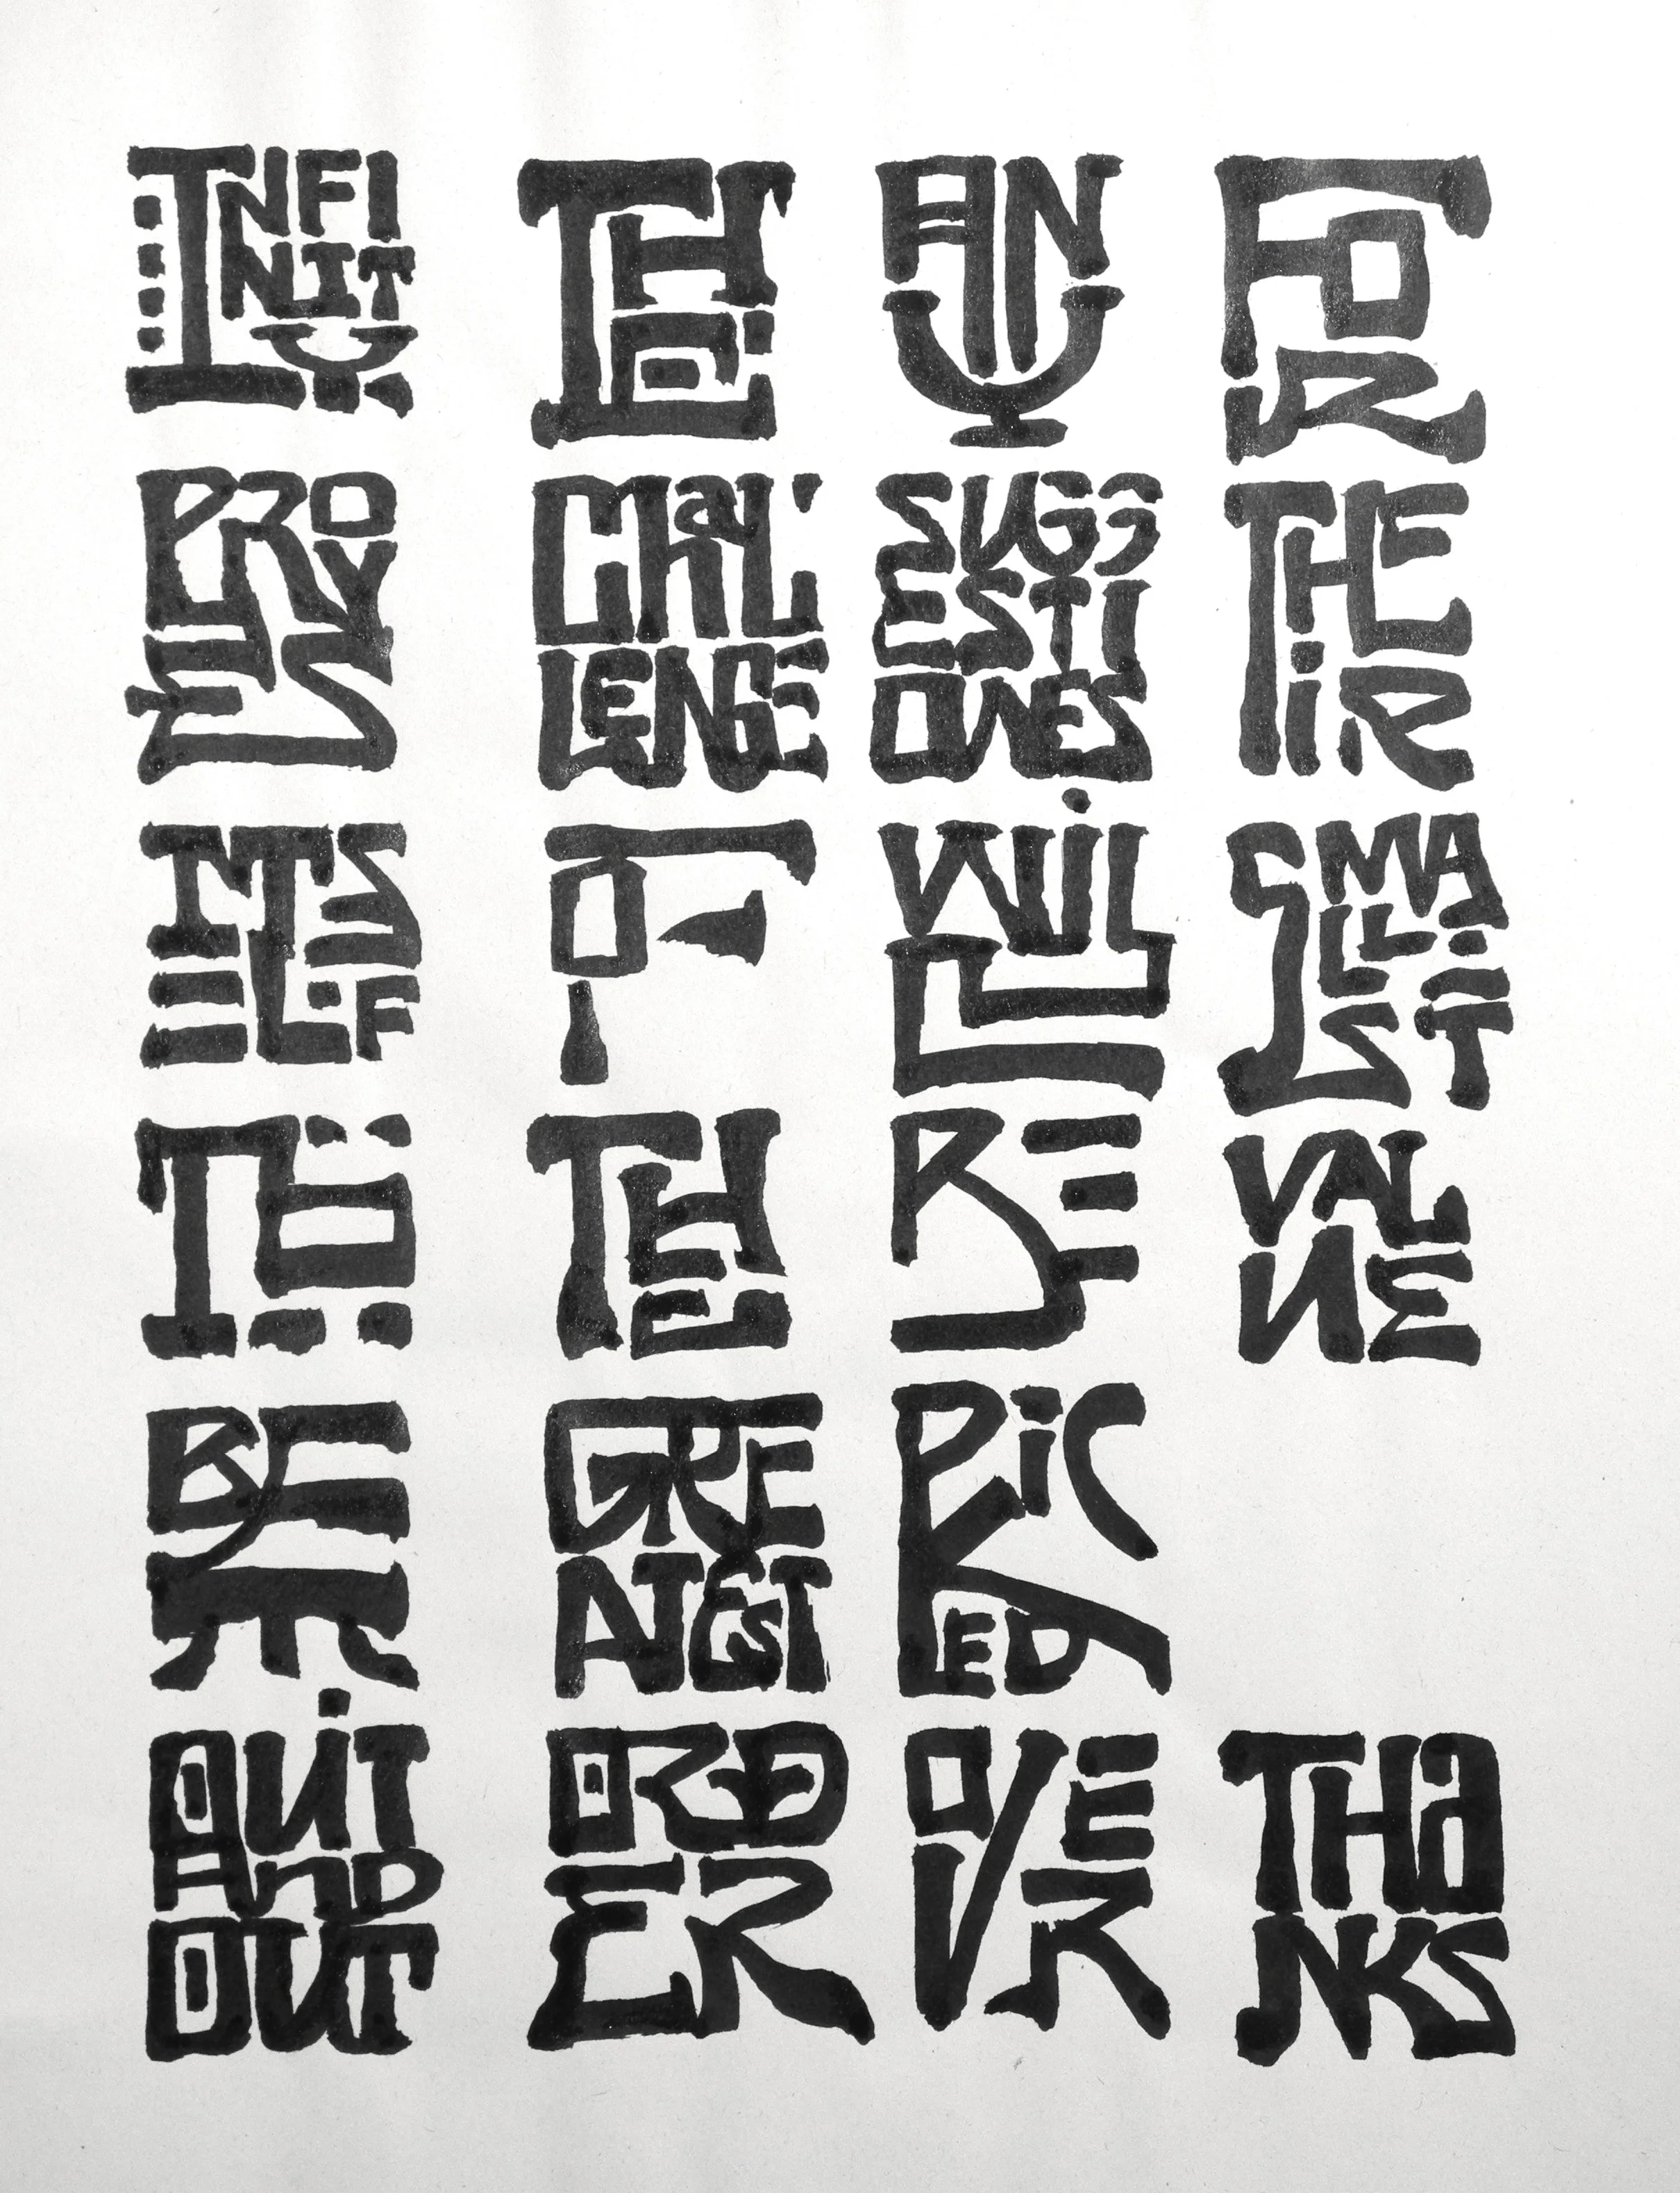 INFINITY
PROVES
ITSELF
TO
BE
QUiT
AND
OUT
THE
CHaLLENGE
OF
THE
GREATEST
ORDER
ANY
SUGGESTIONES
WiLL
BE
PiCKED
OVER
FOR
THEiR
SMALLEST
VALUE
THaNKS